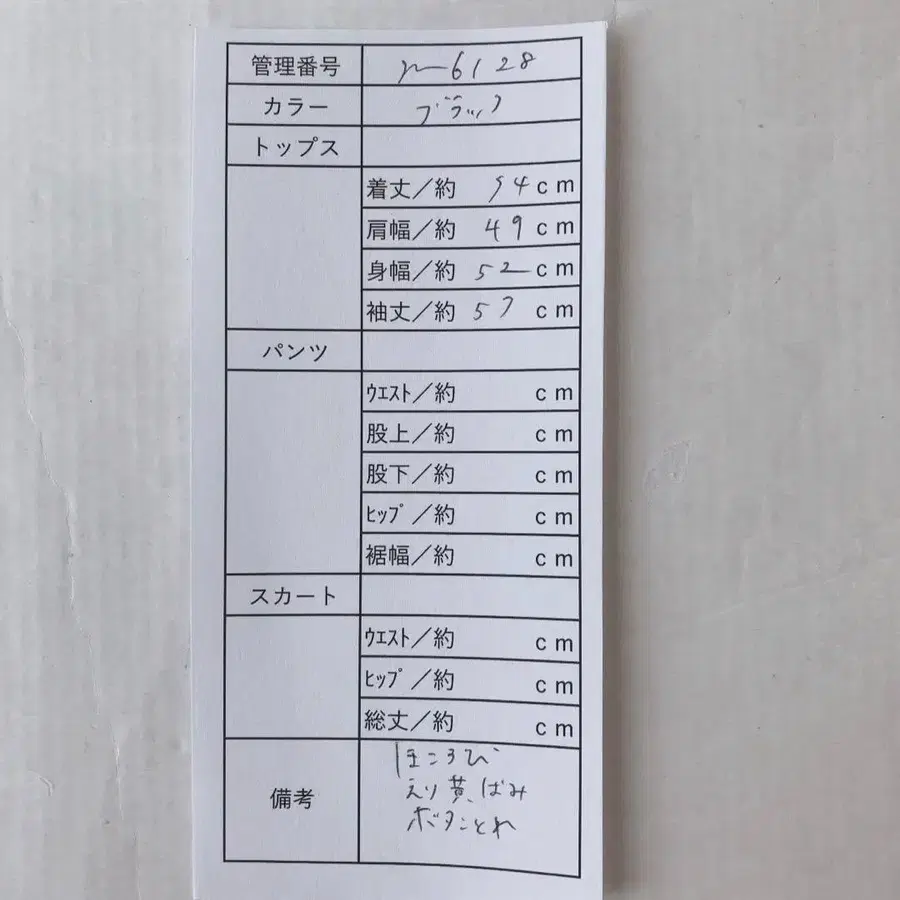 管理番号 m6128
カラー ブラック
トップス
着丈／約 54cm
肩幅／約 49cm
身幅／約 52cm
袖丈／約 57cm
パンツ
ウエスト／約 cm
股上／約 cm
股下／約 cm
ヒップ／約 cm
裾幅／約 cm
スカート
ウエスト／約 cm
ヒップ／約 cm
総丈／約 cm
備考
ほころび
えり黄ばみ
ボタンとれ